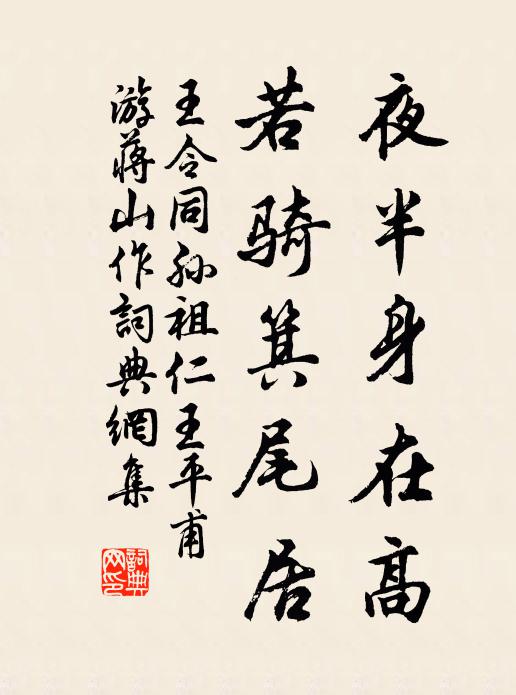 夜半身在高
若骑箕尾居
王令同孙祖仁王平甫
游蒋山作詞典網集
詞典网印